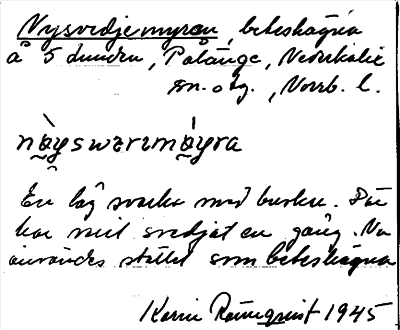 Nysvedjemyren, beteshägna
å S dundra, Palänge, Nederkalix
sn. o tg., Norrb. l.
nὰyswærmáyra
En låg svacka med buskar. Där
har man svedjat en gång. Nu
användes stället som beteshägna
Karin Rönnquist 1945